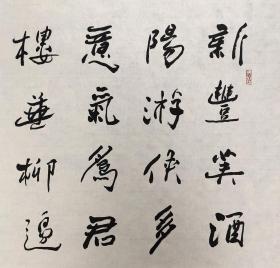 新豐美酒
陽游俠多
意氣爲君
樓垂柳邊